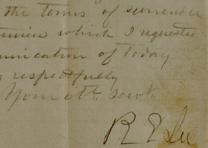 the terms of surrender
which I requested
of today
respectfully
Your obt. servt
R E Lee